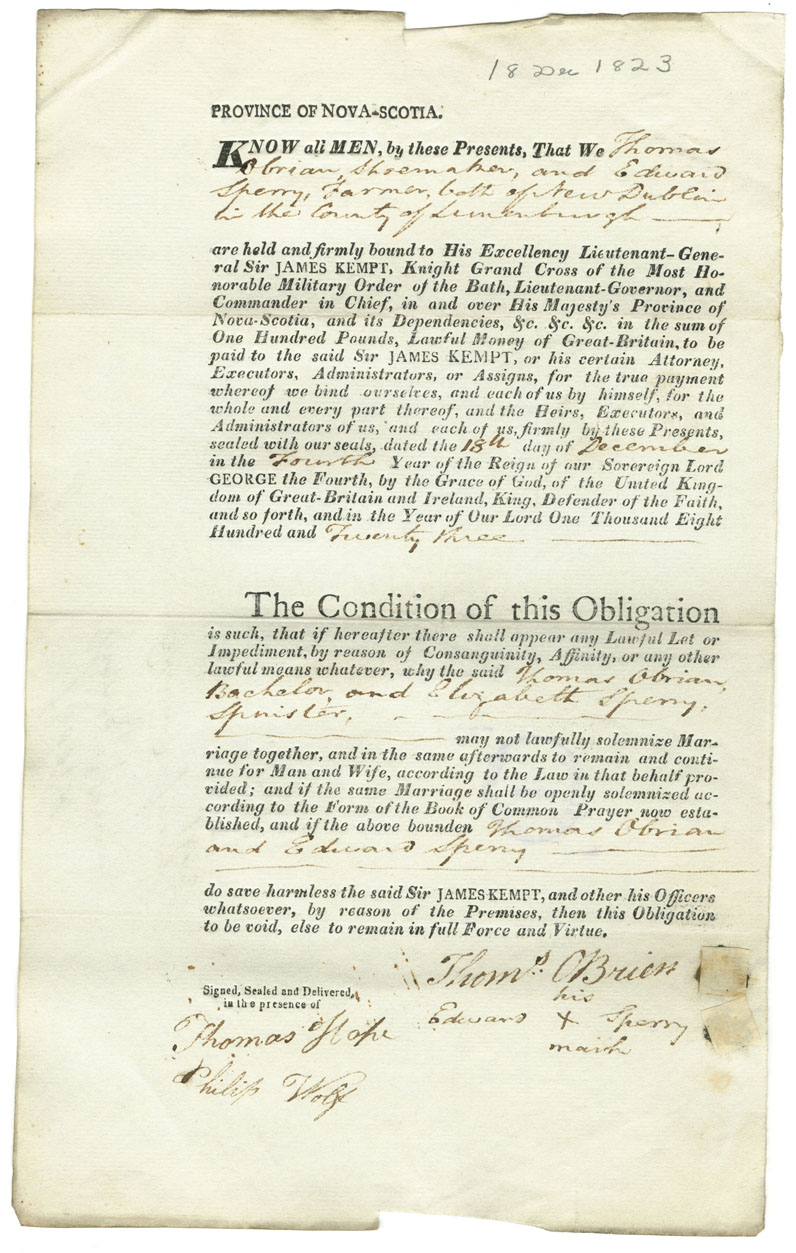 18 Dec 1823
PROVINCE OF NOVA-SCOTIA.
KNOW all MEN, by these Presents, That We Thomas
Obrian, Shoemaker, and Edward
Sperry, Farmer, both of New Dublin
in the County of Lunenburgh
are held and firmly bound to His Excellency Lieutenant-Gene-
ral Sir JAMES KEMPT, Knight Grand Cross of the Most Ho-
norable Military Order of the Bath, Lieutenant-Governor, and
Commander in Chief, in and over His Majesty's Province of
Nova-Scotia, and its Dependencies, &c. &c. &c. in the sum of
One Hundred Pounds, Lawful Money of Great-Britain, to be
paid to the said Sir JAMES KEMPT, or his certain Attorney,
Executors, Administrators, or Assigns, for the true payment
whereof we bind ourselves, and each of us by himself, for the
whole and every part thereof, and the Heirs, Executors, and
Administrators of us, and each of us, firmly by these Presents,
sealed with our seals, dated the 18th day of December
in the Fourth Year of the Reign of our Sovereign Lord
GEORGE the Fourth, by the Grace of God, of the United King-
dom of Great-Britain and Ireland, King, Defender of the Faith,
and so forth, and in the Year of Our Lord One Thousand Eight
Hundred and Twenty three
The Condition of this Obligation
is such, that if hereafter there shall appear any Lawful Let or
Impediment, by reason of Consanguinity, Affinity, or any other
lawful means whatever, why the said Thomas Obrian,
Bachelor, and Elizabeth Sperry,
Spinster,
may not lawfully solemnize Mar-
riage together, and in the same afterwards to remain and conti-
nue for Man and Wife, according to the Law in that behalf pro-
vided; and if the same Marriage shall be openly solemnized ac-
cording to the Form of the Book of Common Prayer now esta-
blished, and if the above bounden Thomas Obrian
and Edward Sperry
do save harmless the said Sir JAMES KEMPT, and other his Officers
whatsoever, by reason of the Premises, then this Obligation
to be void, else to remain in full Force and Virtue.
Signed, Sealed and Delivered,
in the presence of
Thomas Hope
Philip Wolf
Thoms. OBrien
his
Edward X Sperry
mark